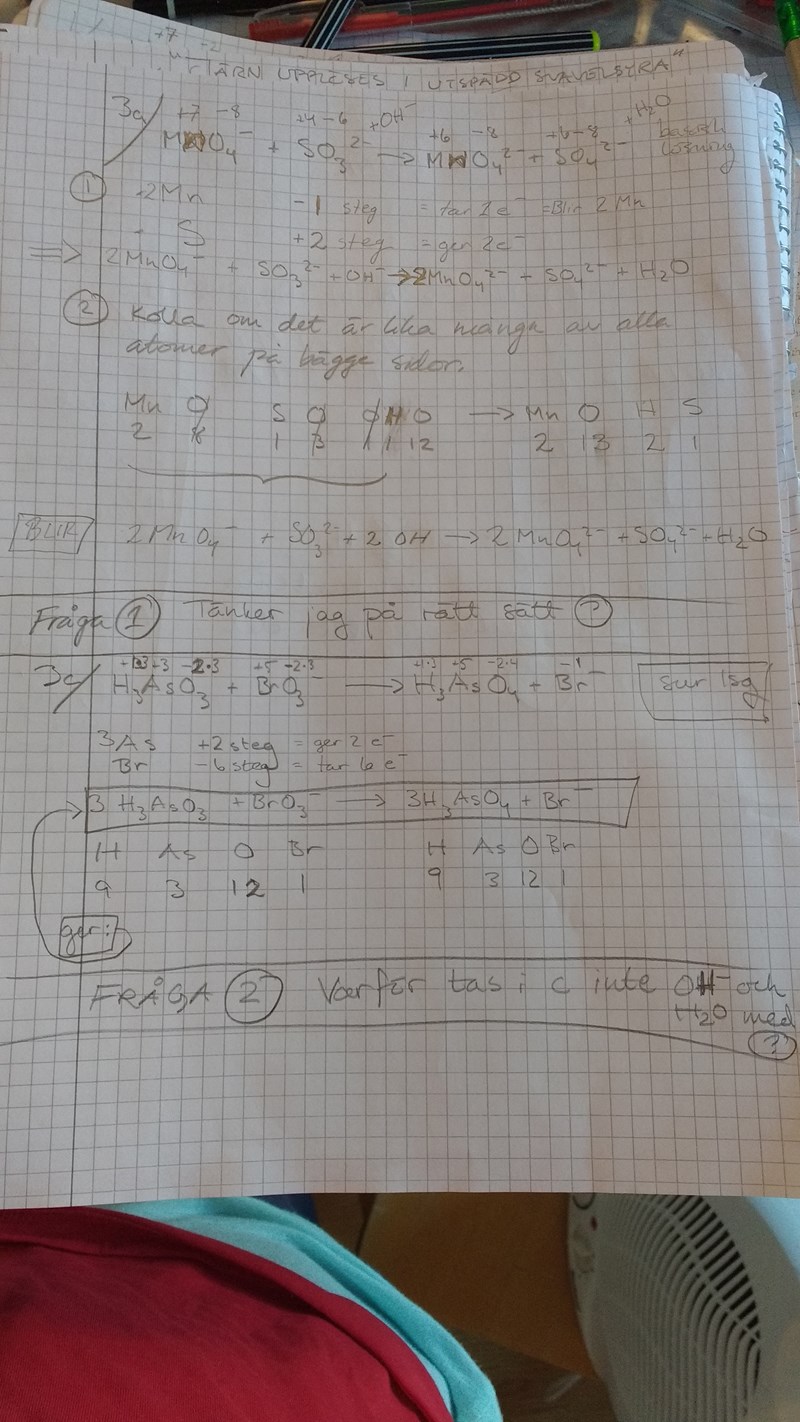 +7 -2
"JÄRN UPPLÖSES I UTSPÄDD SVAVELSYRA"
3a/ +7 -8 +4 -6 +OH⁻ +6 -8 +6 -8 +H₂O
MnO₄⁻ + SO₃²⁻ → MnO₄²⁻ + SO₄²⁻ basisk lösning
① 2Mn -1 steg = tar 1 e⁻ = Blir 2 Mn
S +2 steg = ger 2e⁻
⇒ 2MnO₄⁻ + SO₃²⁻ + OH⁻ → 2MnO₄²⁻ + SO₄²⁻ + H₂O
② Kolla om det är lika många av alla
atomer på bägge sidor.
Mn O S O O H O → Mn O H S
2 8 1 3 1 1 12 2 13 2 1
BLIR 2MnO₄⁻ + SO₃²⁻ + 2 OH → 2 MnO₄²⁻ + SO₄²⁻ + H₂O
Fråga ① Tänker jag på rätt sätt ?
+3 -2·3 +5 -2·3 +1·3 +5 -2·4 -1
3c/ H₃AsO₃ + BrO₃⁻ → H₃AsO₄ + Br⁻ sur lsg
3As +2 steg = ger 2 e⁻
Br -6 steg = tar 6 e⁻
3 H₃AsO₃ + BrO₃⁻ → 3H₃AsO₄ + Br⁻
H As O Br H As O Br
9 3 12 1 9 3 12 1
ger:
FRÅGA ② Varför tas i c inte OH⁻ och
H₂O med
?